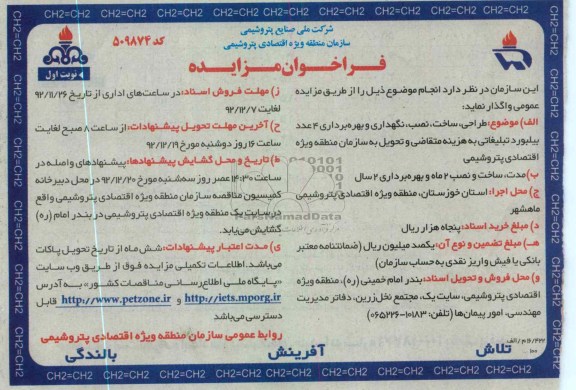 CH2=CH2 CH2=CH2 CH2=CH2 CH2=CH2 CH2=CH2 CH2=CH2 CH2=CH2
شرکت ملی صنایع پتروشیمی
سازمان منطقه ویژه اقتصادی پتروشیمی
کد ۵۰۹۸۷۴
نوبت اول
فراخوان مزایده
این سازمان در نظر دارد انجام موضوع ذیل را از طریق مزایده
عمومی واگذار نماید:
الف) موضوع: طراحی، ساخت، نصب، نگهداری و بهره‌برداری ۴ عدد
بیلبورد تبلیغاتی به هزینه متقاضی و تحویل به سازمان منطقه ویژه
اقتصادی پتروشیمی
ب) مدت، ساخت و نصب ۲ ماه و بهره‌برداری ۲ سال
ج) محل اجرا: استان خوزستان، منطقه ویژه اقتصادی پتروشیمی
ماهشهر
د) مبلغ خرید اسناد: پنجاه هزار ریال
هـ) مبلغ تضمین و نوع آن: یکصد میلیون ریال (ضمانتنامه معتبر
بانکی یا فیش واریز نقدی به حساب سازمان)
و) محل فروش و تحویل اسناد: بندر امام خمینی (ره)، منطقه ویژه
اقتصادی پتروشیمی، سایت یک، مجتمع نخل زرین، دفاتر مدیریت
مهندسی، امور پیمان‌ها (تلفن: ۱۰۱۸۳-۰۶۵۲۲۶)
ز) مهلت فروش اسناد: در ساعت‌های اداری از تاریخ ۹۲/۱۱/۲۶
لغایت ۹۲/۱۲/۷
ح) آخرین مهلت تحویل پیشنهادات: از ساعت ۸ صبح لغایت
ساعت ۱۶ روز دوشنبه مورخ ۹۲/۱۲/۱۹
ط) تاریخ و محل گشایش پیشنهادها: پیشنهادهای واصله در
ساعت ۱۴:۳۰ عصر روز سه‌شنبه مورخ ۹۲/۱۲/۲۰ در محل دبیرخانه
کمیسیون مناقصه سازمان منطقه ویژه اقتصادی پتروشیمی واقع
در سایت یک منطقه ویژه اقتصادی پتروشیمی در بندر امام (ره)
گشایش می‌یابد.
ی) مدت اعتبار پیشنهادات: شش ماه از تاریخ تحویل پاکات
می‌باشد. اطلاعات تکمیلی مزایده فوق از طریق وب سایت
«پایگاه ملی اطلاع‌رسانی مناقصات کشور» به آدرس
http://iets.mporg.ir و http://www.petzone.ir قابل
دسترسی می‌باشد
روابط عمومی سازمان منطقه ویژه اقتصادی پتروشیمی
تلاش آفرینش بالندگی
CH2=CH2 CH2=CH2 CH2=CH2 CH2=CH2 CH2=CH2 CH2=CH2 CH2=CH2